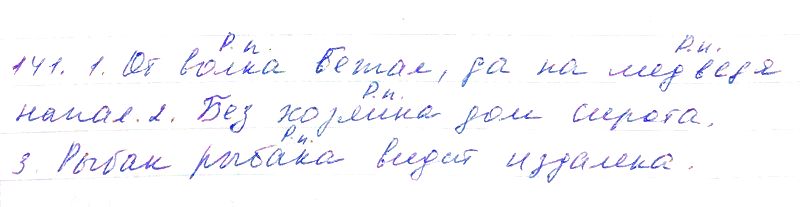 Р.п. Р.п.
141. 1. От волка бежал, да на медведя
Р.п.
напал. 2. Без хозяина дом сирота.
Р.п.
3. Рыбак рыбака видит издалека.